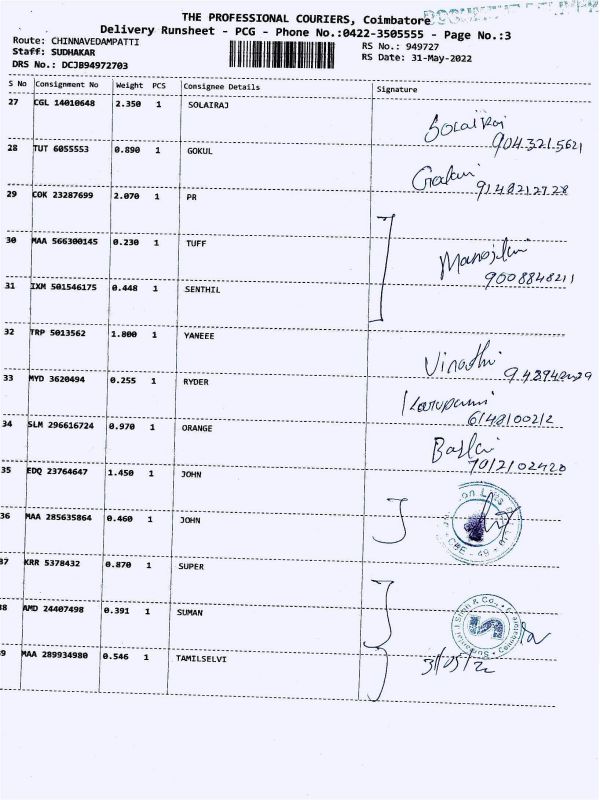 THE PROFESSIONAL COURIERS, Coimbatore
Delivery Runsheet - PCG - Phone No.:0422-3505555 - Page No.:3
Route: CHINNAVEDAMPATTI
Staff: SUDHAKAR
DRS No.: DCJB94972703
RS No.: 949727
RS Date: 31-May-2022
S No Consignment No Weight PCS Consignee Details Signature
27 CGL 14010648 2.350 1 SOLAIRAJ Solairaj
9043215621
28 TUT 6055553 0.890 1 GOKUL
9148212728
29 COK 23287699 2.070 1 PR
30 MAA 566300145 0.230 1 TUFF
9008848211
31 IXM 501546175 0.448 1 SENTHIL
32 TRP 5013562 1.800 1 YANEEE
33 MYD 3620494 0.255 1 RYDER
34 SLM 296616724 0.970 1 ORANGE
7012102420
35 EDQ 23764647 1.450 1 JOHN
36 MAA 285635864 0.460 1 JOHN
37 KRR 5378432 0.870 1 SUPER
38 AMD 24407498 0.391 1 SUMAN
39 MAA 289934980 0.546 1 TAMILSELVI
31/05/22